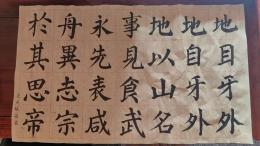 地目牙外
地自牙外
地以山名
事見食武
永先表咸
舟異志宗
於其思帝